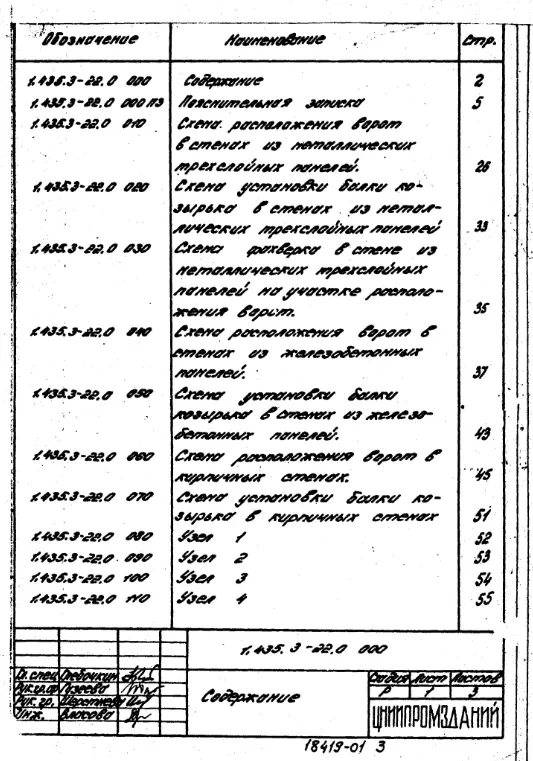 Обозначение Наименование Стр.
1.435.3-22.0 000 Содержание 2
1.435.3-22.0 000 ПЗ Пояснительная записка 5
1.435.3-22.0 010 Схема расположения ворот
в стенах из металлических
трехслойных панелей. 26
1.435.3-22.0 020 Схема установки балки ко-
зырька в стенах из метал-
лических трехслойных панелей 33
1.435.3-22.0 030 Схема фахверка в стене из
металлических трехслойных
панелей на участке располо-
жения ворот. 35
1.435.3-22.0 040 Схема расположения ворот в
стенах из железобетонных
панелей. 37
1.435.3-22.0 050 Схема установки балки
козырька в стенах из железо-
бетонных панелей. 43
1.435.3-22.0 060 Схема расположения ворот в
кирпичных стенах. 45
1.435.3-22.0 070 Схема установки балки ко-
зырька в кирпичных стенах 51
1.435.3-22.0 080 Узел 1 52
1.435.3-22.0 090 Узел 2 53
1.435.3-22.0 100 Узел 3 54
1.435.3-22.0 110 Узел 4 55
1.435.3-22.0 000
Гл. спец. Глебочкин
Рук. гр.
Рук. гр.
Инж. Власова
Содержание
Стадия Лист Листов
Р 1 3
ЦНИИПРОМЗДАНИЙ
18419-01 3